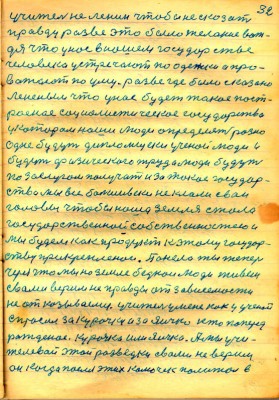 32
учител не ленин чтоби не сказат
правду разве это било желание вож-
дя что у нас в нашем государстве
человека устречают по одежки а про-
важают по уму. разве где било сказано
лениным что у нас будет такое пост-
роеное социалистическое государство
у котором наши люди определят разно
одне будут дипломычки ученой люди и
будут физического труда люди будут
по заслугам получат и за такое государ-
ство ми все большевики не клали сваи
головы чтобы наша земля стала
государственной собственностею и
ми будем как продукт к этому государ-
ству прикреплени. Поне ты же тепер
чуи что ми на земле бедною люди живем
свами верим не правди от зависемости
не отказываему. учител у мене как у учений
спросил за курочку а за яичко кто попред
рожденое. курочка или яичко. А ми учи-
телевай этой разведки свами не верим
он когда послал этих